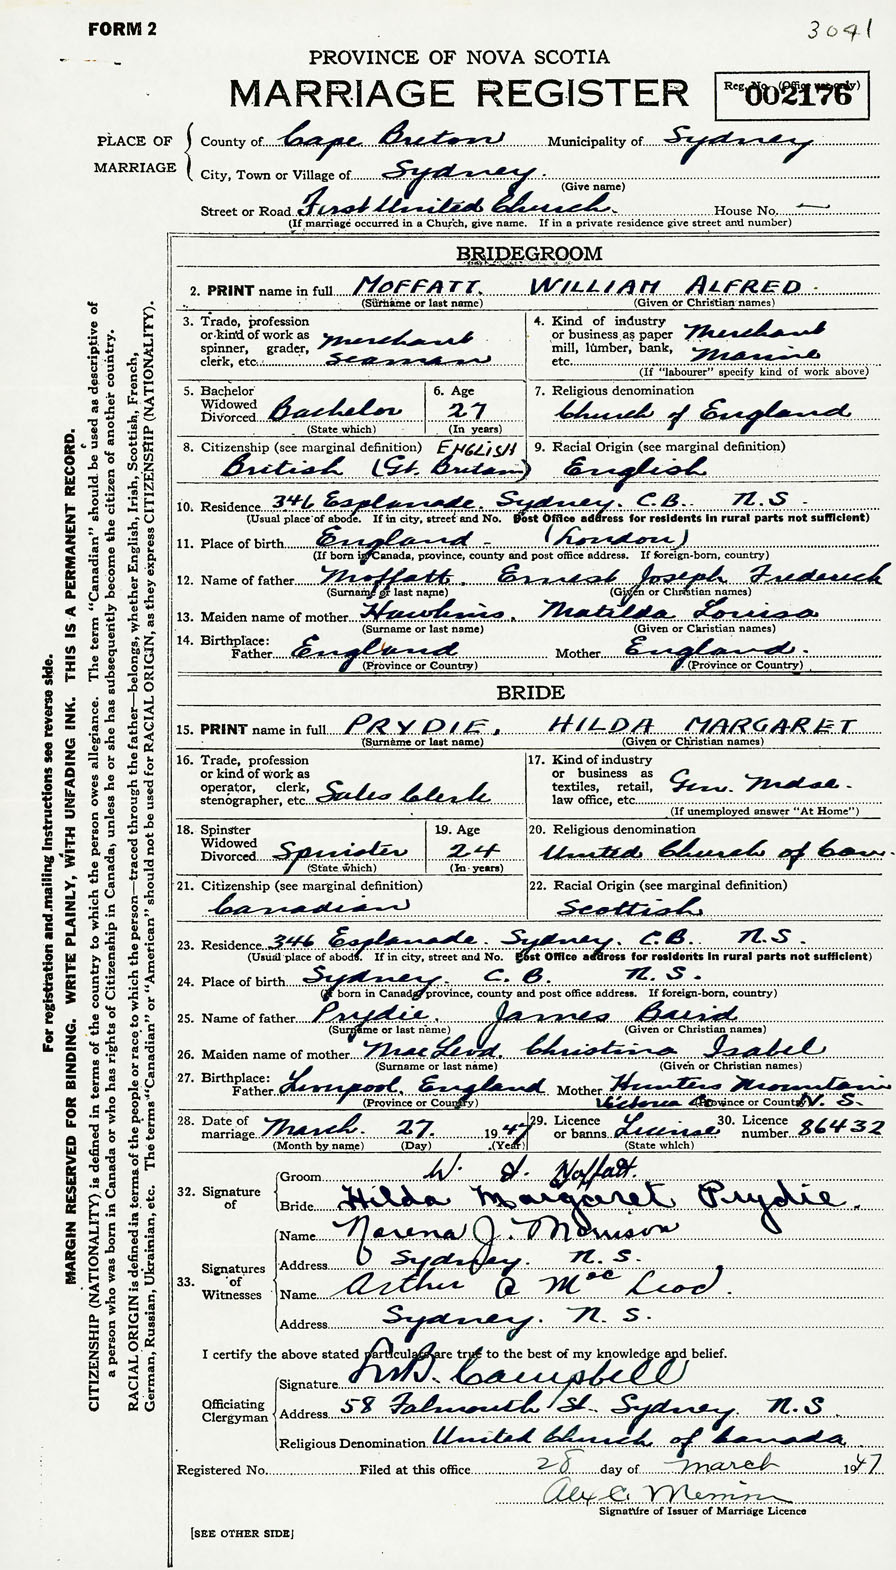 FORM 2
3041
PROVINCE OF NOVA SCOTIA
MARRIAGE REGISTER
Reg. No. (Office use only)
002176
PLACE OF MARRIAGE
County of Cape Breton Municipality of Sydney
City, Town or Village of Sydney.
(Give name)
Street or Road First United Church. House No. —
(If marriage occurred in a Church, give name. If in a private residence give street and number)
BRIDEGROOM
2. PRINT name in full MOFFATT. WILLIAM ALFRED.
(Surname or last name) (Given or Christian names)
3. Trade, profession or kind of work as spinner, grader, clerk, etc. Merchant Seaman
4. Kind of industry or business as paper mill, lumber, bank, etc. Merchant Marine
(If "labourer" specify kind of work above)
5. Bachelor Widowed Divorced Bachelor
(State which)
6. Age 27
(In years)
7. Religious denomination
Church of England
8. Citizenship (see marginal definition) ENGLISH
British (Gt. Britain)
9. Racial Origin (see marginal definition)
English
10. Residence 346 Esplanade. Sydney. C.B. N.S.
(Usual place of abode. If in city, street and No. Post Office address for residents in rural parts not sufficient)
11. Place of birth England - (London)
(If born in Canada, province, county and post office address. If foreign-born, country)
12. Name of father Moffatt. Ernest Joseph Frederick
(Surname or last name) (Given or Christian names)
13. Maiden name of mother Hawkins. Matilda Louisa
(Surname or last name) (Given or Christian names)
14. Birthplace:
Father England Mother England.
(Province or Country) (Province or Country)
BRIDE
15. PRINT name in full PRYDIE, HILDA MARGARET
(Surname or last name) (Given or Christian names)
16. Trade, profession or kind of work as operator, clerk, stenographer, etc. Sales Clerk
17. Kind of industry or business as textiles, retail, law office, etc. Gen. Mdse.
(If unemployed answer "At Home")
18. Spinster Widowed Divorced Spinster
(State which)
19. Age 24
(In years)
20. Religious denomination
United Church of Can.
21. Citizenship (see marginal definition)
Canadian
22. Racial Origin (see marginal definition)
Scottish
23. Residence 346 Esplanade. Sydney. C.B. N.S.
(Usual place of abode. If in city, street and No. Post Office address for residents in rural parts not sufficient)
24. Place of birth Sydney. C.B. N.S.
(If born in Canada, province, county and post office address. If foreign-born, country)
25. Name of father Prydie. James Baird
(Surname or last name) (Given or Christian names)
26. Maiden name of mother MacLeod. Christina Isabel
(Surname or last name) (Given or Christian names)
27. Birthplace:
Father Liverpool, England Mother Hunters Mountain
(Province or Country) Victoria Co. (Province or Country) N.S.
28. Date of marriage March. 27. 1947
(Month by name) (Day) (Year)
29. Licence or banns License
(State which)
30. Licence number 86432
32. Signature of
Groom W. A. Moffatt.
Bride Hilda Margaret Prydie.
33. Signatures of Witnesses
Name Norena J. Morrison
Address Sydney. N.S.
Name Arthur A MacLeod.
Address Sydney. N.S.
I certify the above stated particulars are true to the best of my knowledge and belief.
Officiating Clergyman
Signature Campbell
Address 58 Falmouth St. Sydney. N.S.
Religious Denomination United Church of Canada.
Registered No. Filed at this office 28 day of March 1947
Alex C.
Signature of Issuer of Marriage Licence
[SEE OTHER SIDE]
For registration and mailing instructions see reverse side.
MARGIN RESERVED FOR BINDING. WRITE PLAINLY, WITH UNFADING INK. THIS IS A PERMANENT RECORD.
CITIZENSHIP (NATIONALITY) is defined in terms of the country to which the person owes allegiance. The term "Canadian" should be used as descriptive of
a person who was born in Canada or who has rights of Citizenship in Canada, unless he or she has subsequently become the citizen of another country.
RACIAL ORIGIN is defined in terms of the people or race to which the person—traced through the father—belongs, whether English, Irish, Scottish, French,
German, Russian, Ukrainian, etc. The terms "Canadian" or "American" should not be used for RACIAL ORIGIN, as they express CITIZENSHIP (NATIONALITY).